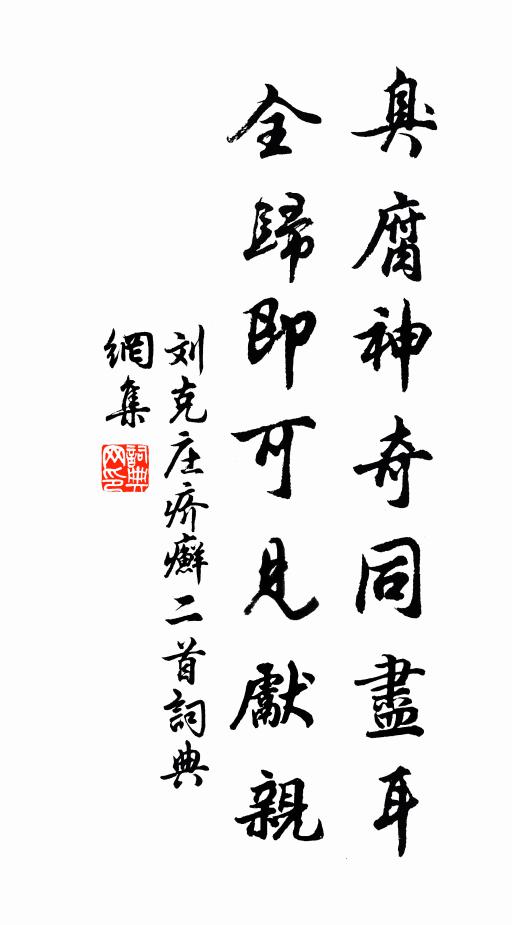 臭腐神奇同盡耳
全歸即可見獻親
刘克庄疥癬二首詞典
網集
詞典网印